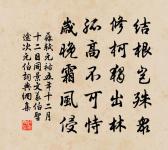 結根豈殊眾
修柯獨出林
孤高不可恃
歲晚霜風侵
蘇軾元祐五年十二月
十二日同景文義伯聖
途次元伯詞典佣集